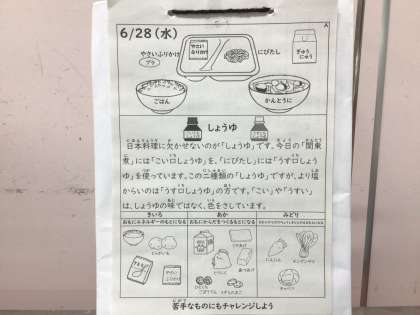 A
6/28(水)
やさいふりかけ
やさい
ふりかけ
にびたし
ぎゅう
にゅう
ごはん
かんとうに
しょうゆ
日本料理に欠かせないのが「しょうゆ」です。今日の「関東
煮」には「こい口しょうゆ」を、「にびたし」には「うす口しょう
ゆ」を使っています。この二種類の「しょうゆ」ですが、より塩
からいのは「うす口しょうゆ」の方です。「こい」や「うすい」
は、しょうゆの味ではなく、色をさしています。
きいろ
あか
みどり
おもにエネルギーのもとになる
おもにからだをつくるもとになる
にんじん
苦手なものにもチャレンジしよう